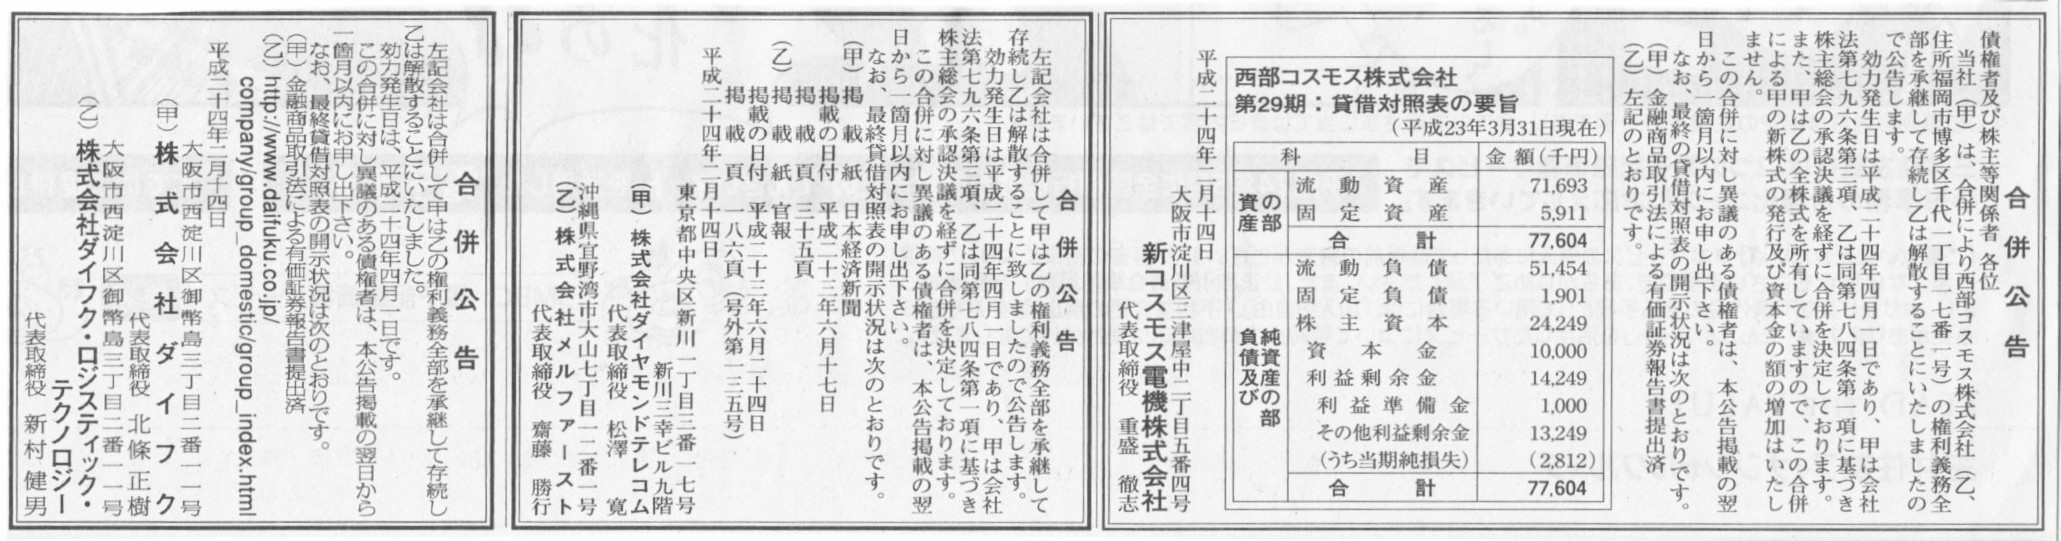 合併公告
債権者及び株主等関係者 各位
当社(甲)は、合併により西部コスモス株式会社(乙、
住所福岡市博多区千代一丁目七番一号)の権利義務全
部を承継して存続し乙は解散することにいたしましたの
で公告します。
効力発生日は平成二十四年四月一日であり、甲は会社
法第七九六条第三項、乙は同第七八四条第一項に基づき
株主総会の承認決議を経ずに合併を決定しております。
また、甲は乙の全株式を所有していますので、この合併
による甲の新株式の発行及び資本金の額の増加はいたし
ません。
この合併に対し異議のある債権者は、本公告掲載の翌
日から一箇月以内にお申し出下さい。
なお、最終の貸借対照表の開示状況は次のとおりです。
(甲)金融商品取引法による有価証券報告書提出済
(乙)左記のとおりです。
西部コスモス株式会社
第29期:貸借対照表の要旨
(平成23年3月31日現在)
科 目 金 額(千円)
資産の部
流動資産 71,693
固定資産 5,911
合計 77,604
負債及び純資産の部
流動負債 51,454
固定負債 1,901
株主資本 24,249
資本金 10,000
利益剰余金 14,249
利益準備金 1,000
その他利益剰余金 13,249
(うち当期純損失) (2,812)
合計 77,604
平成二十四年二月十四日
大阪市淀川区三津屋中二丁目五番四号
新コスモス電機株式会社
代表取締役 重盛 徹志
合併公告
左記会社は合併して甲は乙の権利義務全部を承継して
存続し乙は解散することに致しましたので公告します。
効力発生日は平成二十四年四月一日であり、甲は会社
法第七九六条第三項、乙は同第七八四条第一項に基づき
株主総会の承認決議を経ずに合併を決定しております。
この合併に対し異議のある債権者は、本公告掲載の翌
日から一箇月以内にお申し出下さい。
なお、最終貸借対照表の開示状況は次のとおりです。
(甲)掲載紙 日本経済新聞
掲載の日付 平成二十三年六月十七日
掲載頁 三十五頁
(乙)掲載紙 官報
掲載の日付 平成二十三年六月二十四日
掲載頁 一八六頁(号外第一三五号)
平成二十四年二月十四日
東京都中央区新川一丁目三番一七号
新川三幸ビル九階
(甲)株式会社ダイヤモンドテレコム
代表取締役 松澤 寛
沖縄県宜野湾市大山七丁目一二番一号
(乙)株式会社メルファースト
代表取締役 齋藤 勝行
合併公告
左記会社は合併して甲は乙の権利義務全部を承継して存続し
乙は解散することにいたしました。
効力発生日は、平成二十四年四月一日です。
この合併に対し異議のある債権者は、本公告掲載の翌日から
一箇月以内にお申し出下さい。
なお、最終貸借対照表の開示状況は次のとおりです。
(甲)金融商品取引法による有価証券報告書提出済
(乙)http://www.daifuku.co.jp/
company/group_domestic/group_index.html
平成二十四年二月十四日
大阪市西淀川区御幣島三丁目二番一一号
(甲)株式会社ダイフク
代表取締役 北條 正樹
大阪市西淀川区御幣島三丁目二番一一号
(乙)株式会社ダイフク・ロジスティック・
テクノロジー
代表取締役 新村 健男